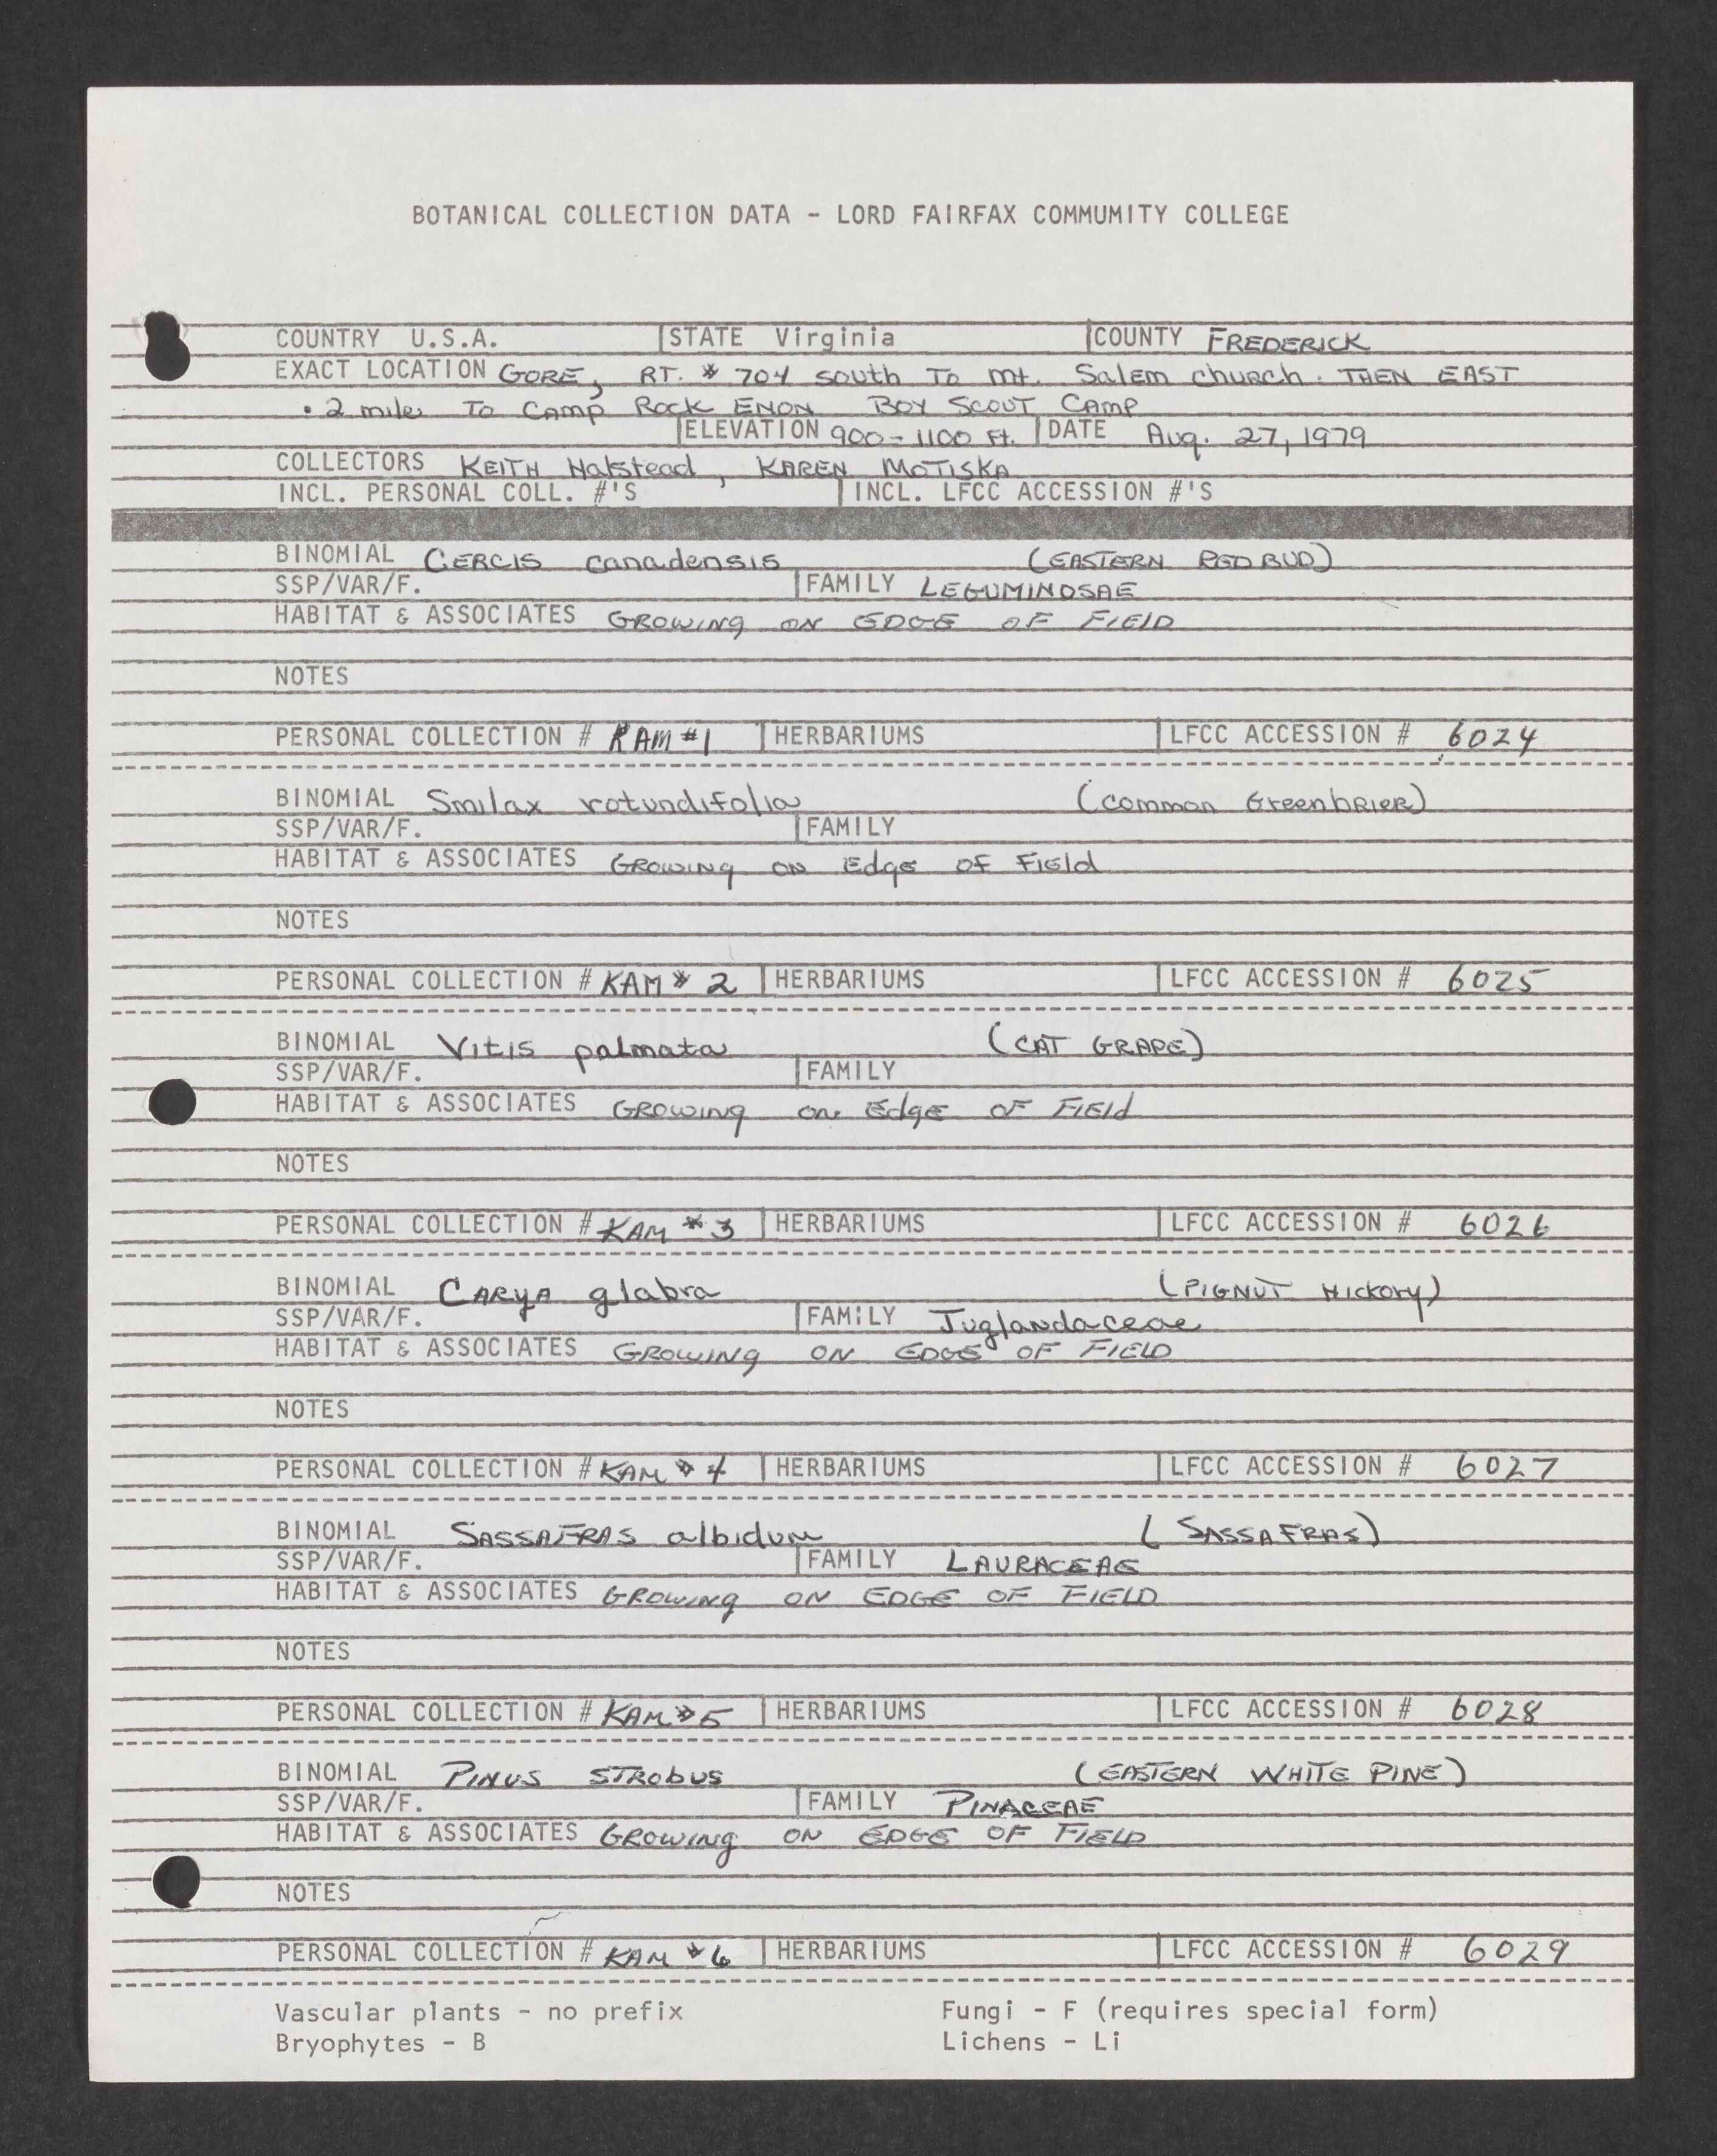 BOTANICAL COLLECTION DATA - LORD FAIRFAX COMMUMITY COLLEGE
COUNTRY U.S.A. STATE Virginia COUNTY FREDERICK
EXACT LOCATION GORE, RT. # 704 south To Mt. Salem church. THEN EAST
.2 mile To Camp Rock ENON Boy Scout Camp
ELEVATION 900-1100 Ft. DATE Aug. 27, 1979
COLLECTORS KEITH Halstead, KAREN MOTISKA
INCL. PERSONAL COLL. #'S INCL. LFCC ACCESSION #'S
BINOMIAL CERCIS canadensis (EASTERN REDBUD)
SSP/VAR/F. FAMILY LEGUMINOSAE
HABITAT & ASSOCIATES GROWING ON EDGE OF FIELD
NOTES
PERSONAL COLLECTION # KAM #1 HERBARIUMS LFCC ACCESSION # 6024
BINOMIAL Smilax rotundifolia (common GreenbRIER)
SSP/VAR/F. FAMILY
HABITAT & ASSOCIATES GROWING ON Edge OF Field
NOTES
PERSONAL COLLECTION # KAM # 2 HERBARIUMS LFCC ACCESSION # 6025
BINOMIAL Vitis palmata (CAT GRAPE)
SSP/VAR/F. FAMILY
HABITAT & ASSOCIATES GROWING on Edge OF FIELD
NOTES
PERSONAL COLLECTION # KAM # 3 HERBARIUMS LFCC ACCESSION # 6026
BINOMIAL CARYA glabra (PIGNUT Hickory)
SSP/VAR/F. FAMILY Juglandaceae
HABITAT & ASSOCIATES GROWING ON EDGE OF FIELD
NOTES
PERSONAL COLLECTION # KAM # 4 HERBARIUMS LFCC ACCESSION # 6027
BINOMIAL SASSAFRAS albidum (SASSAFRAS)
SSP/VAR/F. FAMILY LAURACEAE
HABITAT & ASSOCIATES GROWING ON EDGE OF FIELD
NOTES
PERSONAL COLLECTION # KAM # 5 HERBARIUMS LFCC ACCESSION # 6028
BINOMIAL PINUS STRobus (EASTERN WHITE PINE)
SSP/VAR/F. FAMILY PINACEAE
HABITAT & ASSOCIATES GROWING ON EDGE OF FIELD
NOTES
PERSONAL COLLECTION # KAM # 6 HERBARIUMS LFCC ACCESSION # 6029
Vascular plants - no prefix Fungi - F (requires special form)
Bryophytes - B Lichens - Li